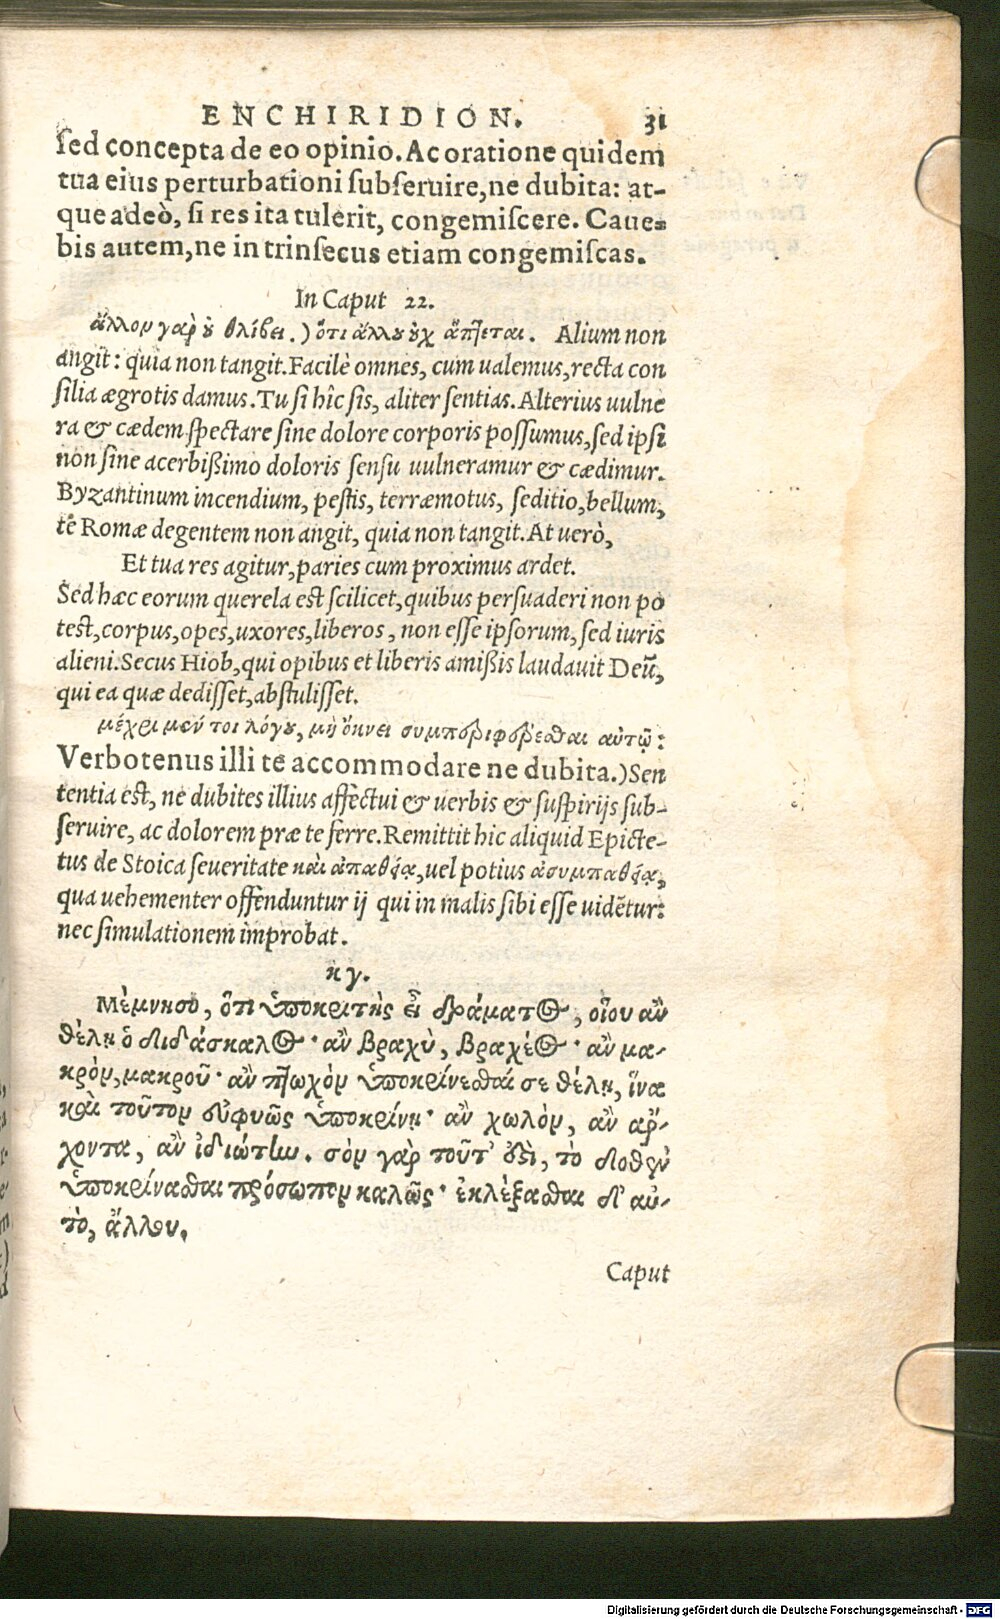 ENCHIRIDION. 31
ſed concepta de eo opinio. Ac oratione quidem
tua eius perturbationi ſubſeruire, ne dubita: at-
que adeò, ſi res ita tulerit, congemiſcere. Caue-
bis autem, ne in trinſecus etiam congemiſcas.
In Caput 22.
ἄλλον γὰρ ȣ θλίβει.) ὅτι ἄλλȣ ȣχ ἅπτεται. Alium non
angit: quia non tangit. Facilè omnes, cum ualemus, recta con
ſilia ægrotis damus. Tu ſi hîc ſis, aliter ſentias. Alterius uulne
ra & cædem ſpectare ſine dolore corporis poſſumus, ſed ipſi
non ſine acerbißimo doloris ſenſu uulneramur & cædimur.
Byzantinum incendium, peſtis, terræmotus, ſeditio, bellum,
te Romæ degentem non angit, quia non tangit. At uerò,
Et tua res agitur, paries cum proximus ardet.
Sed hæc eorum querela eſt ſcilicet, quibus perſuaderi non po
teſt, corpus, opes, uxores, liberos, non eſſe ipſorum, ſed iuris
alieni. Secus Hiob, qui opibus et liberis amißis laudauit Deū,
qui ea quæ dediſſet, abſtuliſſet.
μέχρι μέν τοι λόγȣ, μὴ ὄκνει συμπεριφέρεσθαι αὐτῷ:
Verbotenus illi te accommodare ne dubita.) Sen
tentia eſt, ne dubites illius affectui & uerbis & ſuſpirijs ſub-
ſeruire, ac dolorem præ te ferre. Remittit hic aliquid Epicte-
tus de Stoica ſeueritate καὶ ἀπαθείᾳ, uel potius ἀσυμπαθείᾳ,
qua uehementer offenduntur ij qui in malis ſibi eſſe uidētur:
nec ſimulationem improbat.
κγ.
Μέμνησο, ὅτι ὑποκριτὴς εἶ δράματος, οἵου ἂν
θέλῃ ὁ διδάσκαλος· ἂν βραχὺ, βραχέος· ἂν μα-
κρὸν, μακροῦ· ἂν πτωχὸν ὑποκρίνεσθαί σε θέλῃ, ἵνα
καὶ τοῦτον εὐφυῶς ὑποκρίνῃ· ἂν χωλὸν, ἂν ἄρ-
χοντα, ἂν ἰδιώτην. σὸν γὰρ τοῦτ' ἐστὶ, τὸ δοθὲν
ὑποκρίνασθαι πρόσωπον καλῶς· ἐκλέξασθαι δ' αὐ-
τὸ, ἄλλου.
Caput
Digitalisierung gefördert durch die Deutsche Forschungsgemeinschaft - DFG